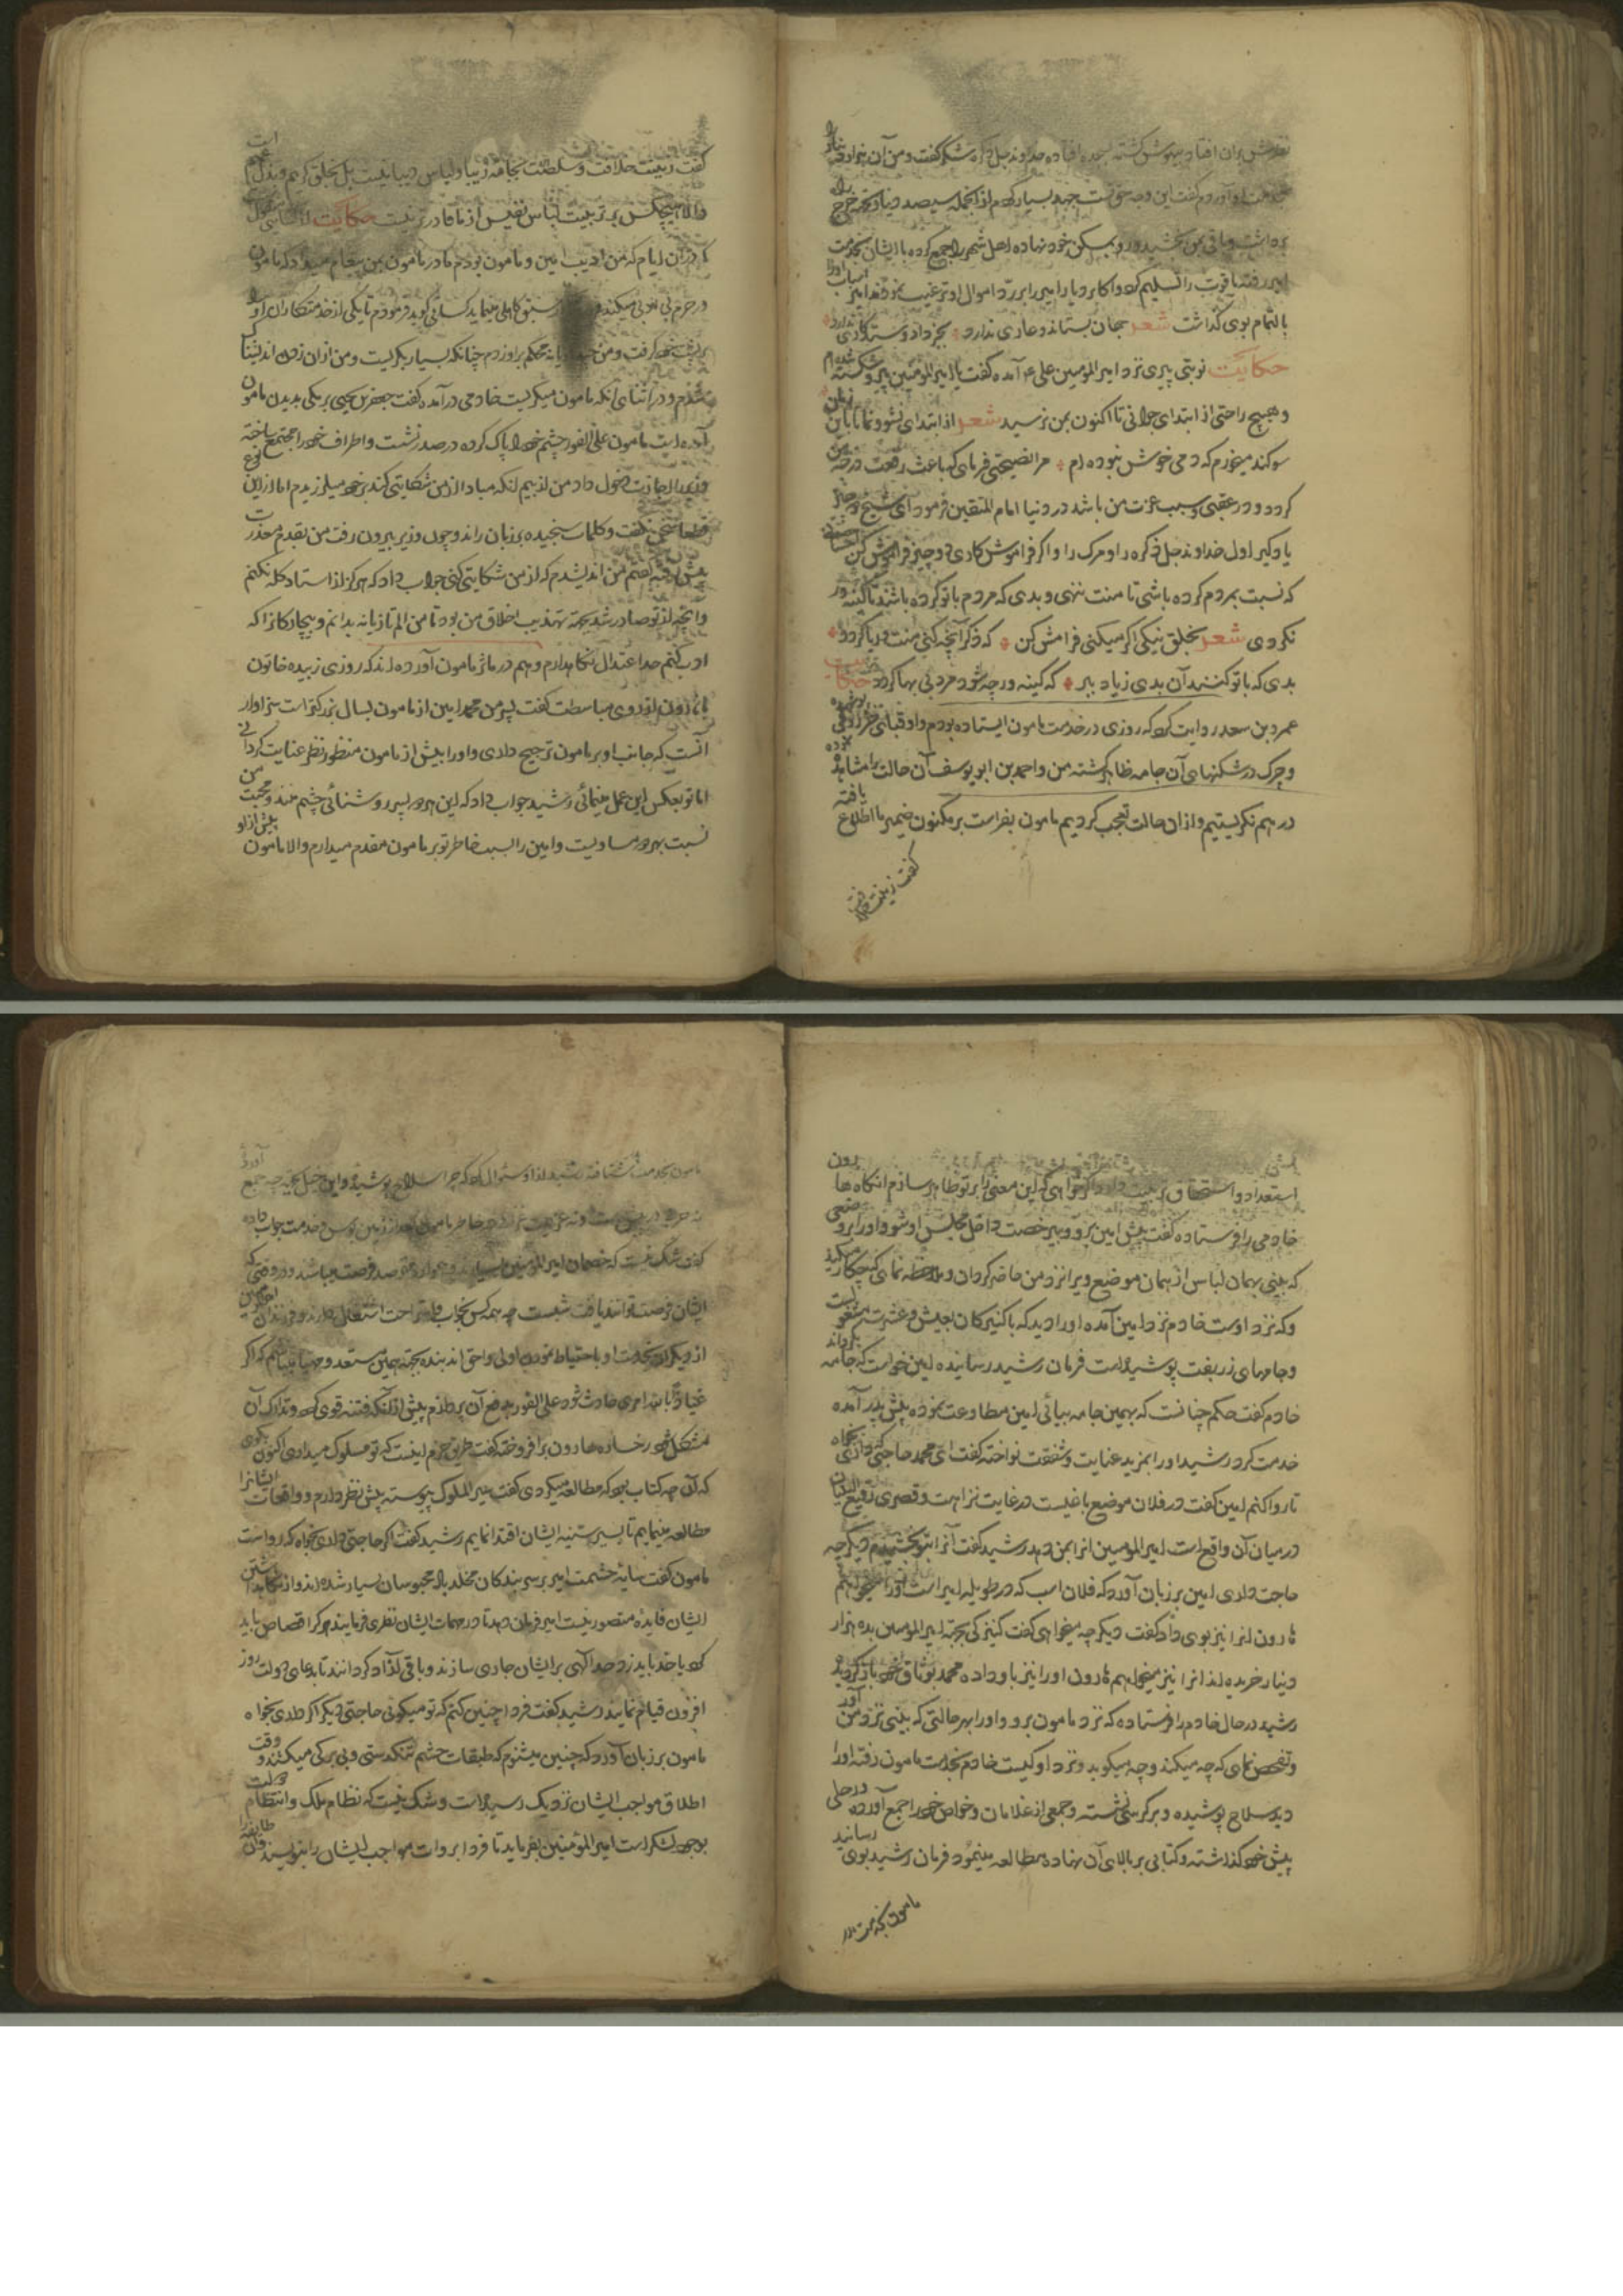 بران افتاد بیهوش کشته بسجده افتاده خداوند جل ذکره شکر گفت و من آن
خدمت او آوردم گفت این وجه جهد بسیار کرد از انجمله سیصد دینار بجهة خرج راه
برداشت و باقی بمن بخشید و رو بمسکن خود نهاده اهل شهر را جمع کرده با ایشان بخدمت
امیر رفته یاقوت را تسلیم کرد و اکابر دیار امیر را بر رد اموال او ترغیب نمودند امیر اسباب او را
بالتمام بوی گذاشت شعر جهان بستاند و عاری ندارد بجز داد و ستد کاری ندارد
حکایت نوبتی پیری نزد امیر المومنین علی ع آمده گفت یا امیر المومنین پیر و شکسته شده ام
و هیچ راحتی از ابتدای جوانی تا اکنون بمن نرسید شعر از ابتدای نشو و نما تا باین زمان
سوکند میخورم که دمی خوش نبوده ام مرا نصیحتی فرمای که باعث رفعت درجه من
کردد و در عقبی و سبب عزت من باشد در دنیا امام المتقین فرمود ای شیخ دو چیز
یاد کیر اول خداوند جل ذکره را و مرک را و اکر فراموش کاری دو چیز فراموش کن
که نسبت بمردم کرده باشی تا منت ننهی و بدی که مردم با تو کرده باشند تا کینه ور
نکردی شعر بخلق نیکی اکر میکنی فرامش کن که ذکر آنچه کنی منت و ریا کردد
بدی که با تو کنند آن بدی ز یاد ببر که کینه ور چه شود مرد بی بها کردد حکایت
عمرو بن سعد روایت کرد که روزی در خدمت مامون ایستاده بودم و او قبائی پوشیده
و چرک در شکنهای آن جامه ظاهر کشته من و احمد بن ابو یوسف آن حالت را مشاهده نموده
در هم نکریستیم و از ان حالت تعجب کردیم مامون بفراست بر مکنون ضمیر ما اطلاع یافته
گفت زینت خلافت
گفت زینت خلافت و سلطنت بجامه زیبا و لباس دیبا نیست بل بخلق کریم و بذل است
والا هیچکس بر تربیت لباس نفیس از ما قادر تر نیست حکایت از
که در ان ایام که من ادیب امین و مامون بودم مادر مامون بمن پیغام میداد که مامون
در حرم بی ادبی میکند و سبق کاهلی مینماید کسائی کوید فرمودم تا یکی از خدمتکاران او را
بر پشت خود کرفت و من محکم براو زدم چنانکه بسیار بکریست و من از ان زدن اندیشناک
شدم و در اثنای انکه مامون میکریست خادمی در آمده کفت جعفر بن یحیی برمکی بدیدن مامون
آمده است مامون علی الفور چشم خود را پاک کرده در صدر نشست و اطراف خود را مجتمع ساخته
وزیر را اجازت دخول داد من از بیم انکه مبادا از من شکایتی کند بر خود میلرزیدم اما از این نوع
قطعا سخن نکفت و کلمات سنجیده بر زبان راند و چون وزیر بیرون رفت من بقدم معذرت
پیش رفته کفتم من اندیشیدم که از من شکایتی کنی جواب داد که هرکز از استاد کله نکنم
و آنچه از تو صادر شد بجهة تهذیب اخلاق من بود تا من الم تازیانه بدانم و بیچارکانرا که
ادب کنم حد اعتدال نکاهدارم و هم در مآثر مامون آورده اند که روزی زبیده خاتون
با هارون از روی مباسطت کفت پسر من محمد امین از مامون بسال بزرکتر است سزاوار
آنست که جانب او بر مامون ترجیح دادی و او را بیش از مامون منظور نظر عنایت کردانی
اما تو بعکس این عمل مینمائی رشید جواب داد که این هر دو پسر روشنائی چشم منند و محبت من
نسبت بهر دو مساویست و امین را بسبب خاطر تو بر مامون مقدم میدارم والا مامون بیش از او
استعداد و استحقاق تربیت دارد اکر خواهی که این معنی را بر تو ظاهر سازم انکاه ها
خادمی را فرستاده گفت پیش امین برو و بی رخصت داخل مجلس او شو و او را بر وضعی
که بینی بهمان لباس از همان موضع ویرا نزد من حاضر کردان و ملاحظه نمای که چکار میکند
و که نزد اوست خادم نزد امین آمده او را دید که با کنیزکان بعیش و عشرت مشغولست
و جامهای زربفت پوشیده است فرمان رشید رسانیده امین خواست که جامه بکرداند
خادم کفت حکم چنانست که بهمین جامه بیائی امین مطاوعت نموده پیش پدر آمده
خدمت کرد رشید او را بمزید عنایت و شفقت نواخته کفت ای محمد حاجتی که داری بخواه
تا روا کنم امین کفت در فلان موضع باغیست در غایت نزاهت و قصری رفیع البنیان
در میان آن واقع است امیر المومنین انرا بمن دهد رشید کفت آنرا بتو بخشیدم دیکر چه
حاجت داری امین بر زبان آورد که فلان اسب که در طویله امیر است او را میخواهم
هارون انرا نیز بوی داد کفت دیکر چه میخواهی کفت کنیزکی بجهة امیر المومنین بده هزار
دینار خریده اند انرا نیز میخواهم هارون او را نیز باو داده محمد بوثاق خود باز کردید
رشید در حال خادم را فرستاده که نزد مامون برو و او را بهر حالتی که بینی نزد من آور
و تفحص نمای که چه میکند و چه میکوید و نزد او کیست خادم بخدمت مامون رفته او را
دید سلاح پوشیده و بر کرسی نشسته و جمعی از غلامان و خواص خود را جمع آورده و رحلی
پیش خود گذاشته و کتابی بر بالای آن نهاده مطالعه مینمود فرمان رشید بوی رسانید
مامون بخدمت پدر
مامون بخدمت شتافته رشید از او سؤال کرد که چرا سلاح پوشیده و این خیل بجهة چه جمع آوردی
نه حربی در پیش است و نه عزیمت خاطر مامون بعد از زمین بوس و خدمت جواب داده
کفت شک نیست که خصمان امیر المومنین بسیارند و همواره مترصد فرصت میباشند و در وقتی که
ایشان فرصت توانند یافت شبست چه همه کس بخواب و استراحت اشتغال دارند و فرزندان امیر المومنین
از دیکران بخدمت او باحتیاط نمودن اولی و احق اند بنده بجهة همین مستعد و مهیا میباشم که اکر
عیاذا بالله امری حادث شود علی الفور بدفع آن پردازم پیش از انکه فتنه قوی کرد و تدارک آن
مشکل شود رخساره هارون بر افروخته کفت طریق حزم اینست که تو مسلوک میداری اکنون بکوی
که آن چه کتاب بود که مطالعه میکردی کفت سیر الملوک پیوسته پیش نظر دارم و واقعات ایشانرا
مطالعه مینمایم تا بسیر سنیه ایشان اقتدا نمایم رشید کفت اکر حاجتی داری بخواه که رواست
مامون کفت سایه حشمت امیر بر سر بندکان مخلد باد محبوسان بسیار شده اند و از نکاهداشتن
ایشان فایده متصور نیست امیر فرمان دهد تا در مهمات ایشان نظری فرمایند هر کرا قصاص باید
کرد یا حد باید زد حد الهی بر ایشان جاری سازند و باقی را آزاد کردانند تا بدعای دولت روز
افزون قیام نمایند رشید کفت فردا چنین کنم که تو میکوئی حاجتی دیکر اکر داری بخواه
مامون بر زبان آورد که چنین میشنوم که طبقات حشم تنکدستی و بی برکی میکشند و وقت
اطلاق مواجب ایشان نزدیک رسیده است و شک نیست که نظام ملک و انتظام دولت
بوجود لشکر است امیر المؤمنین بفرماید تا فردا بروات مواجب ایشان را بنویسند